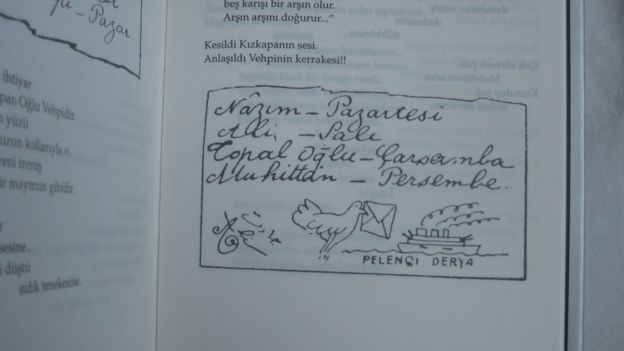 u - Pazar
ihtiyar
pan Oğlu Vehpidir.
yüzü
uzun kollarıyla o,
eni inmiş
ir maymun gibidir.
sesine..
i düştü
sidik tenekesine.
beş karışı bir arşın olur.
Arşın arşını doğurur..."
Kesildi Kızkapanın sesi.
Anlaşıldı Vehpinin kerrakesi!!
Nâzım - Pazartesi
Ali - Salı
Topal Oğlu - Çarşanba
Muhittan - Perşembe.
PELENGİ DERYA